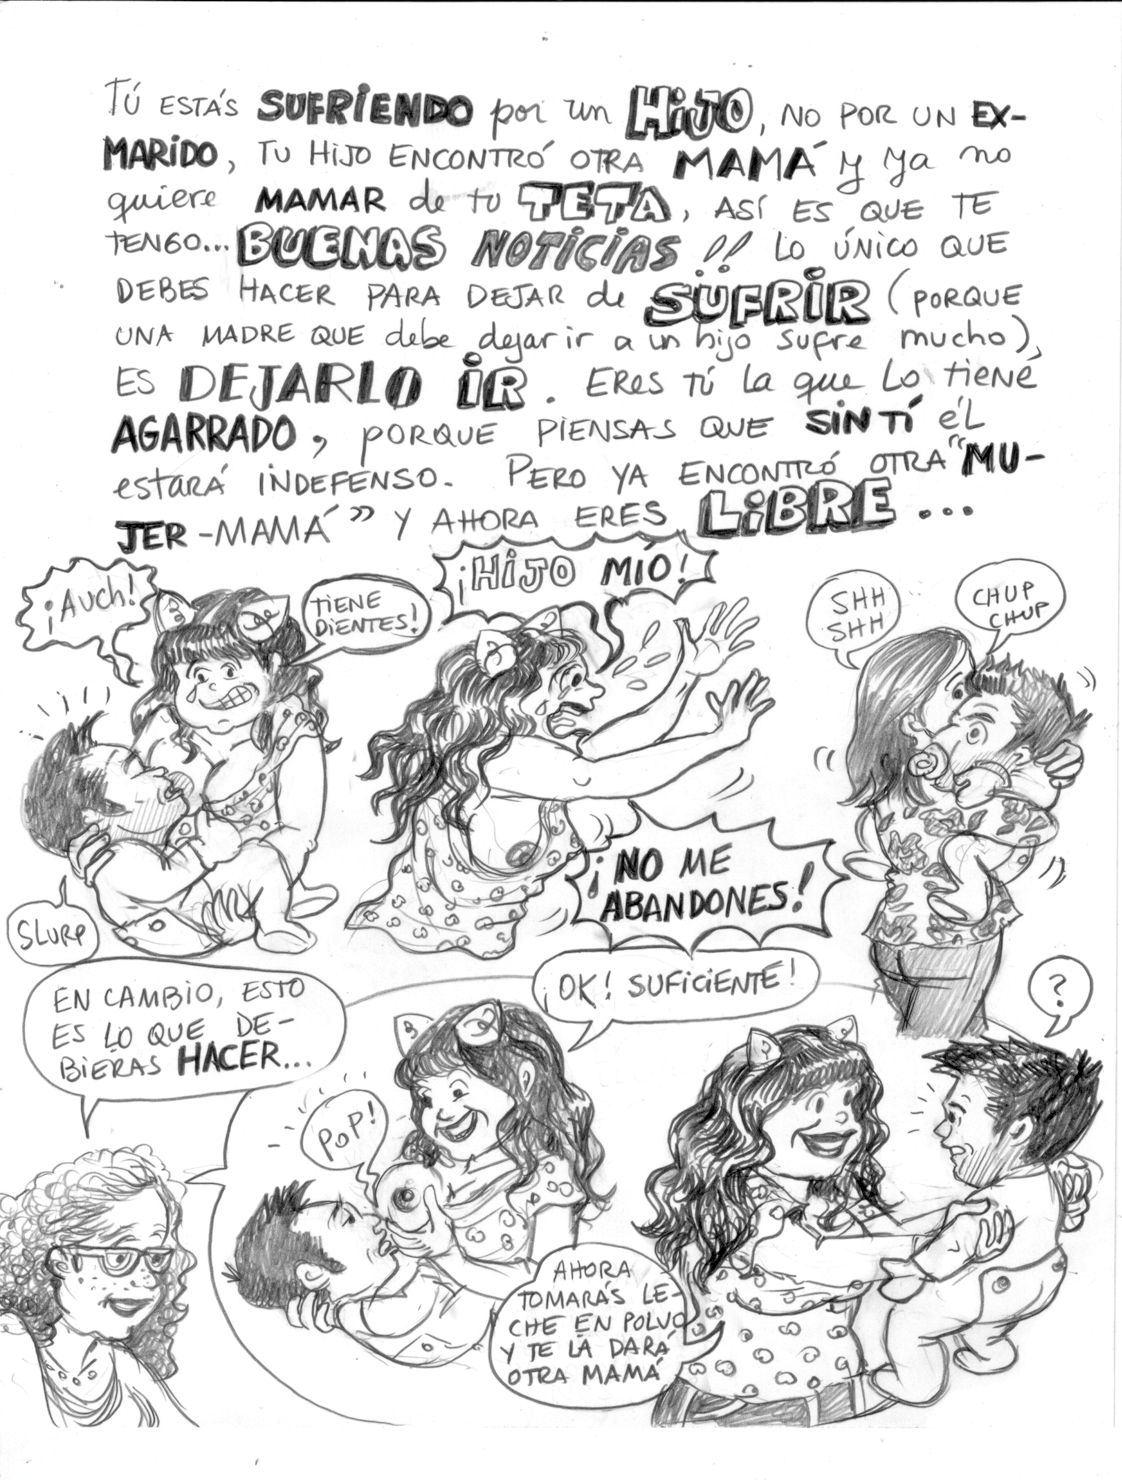 TÚ ESTÁS SUFRIENDO por un HIJO, NO POR UN EX-
MARIDO, TU HIJO ENCONTRÓ OTRA MAMÁ y ya no
quiere MAMAR de tu TETA, ASÍ ES QUE TE
TENGO... BUENAS NOTICIAS!! LO ÚNICO QUE
DEBES HACER PARA DEJAR de SUFRIR (PORQUE
UNA MADRE QUE debe dejar ir a un hijo sufre mucho),
ES DEJARLO IR. ERES TÚ la que LO tiene
AGARRADO, PORQUE PIENSAS QUE SIN TÍ ÉL
estará INDEFENSO. PERO YA ENCONTRÓ OTRA "MU-
JER-MAMÁ" Y AHORA ERES LIBRE...
¡AUCH!
TIENE
DIENTES!
¡HIJO MÍO!
SHH
SHH
CHUP
CHUP
SLURP
¡NO ME
ABANDONES!
EN CAMBIO, ESTO
ES LO QUE DE-
BIERAS HACER...
¡OK! SUFICIENTE!
?
POP!
AHORA
TOMARÁS LE-
CHE EN POLVO
Y TE LA DARÁ
OTRA MAMÁ